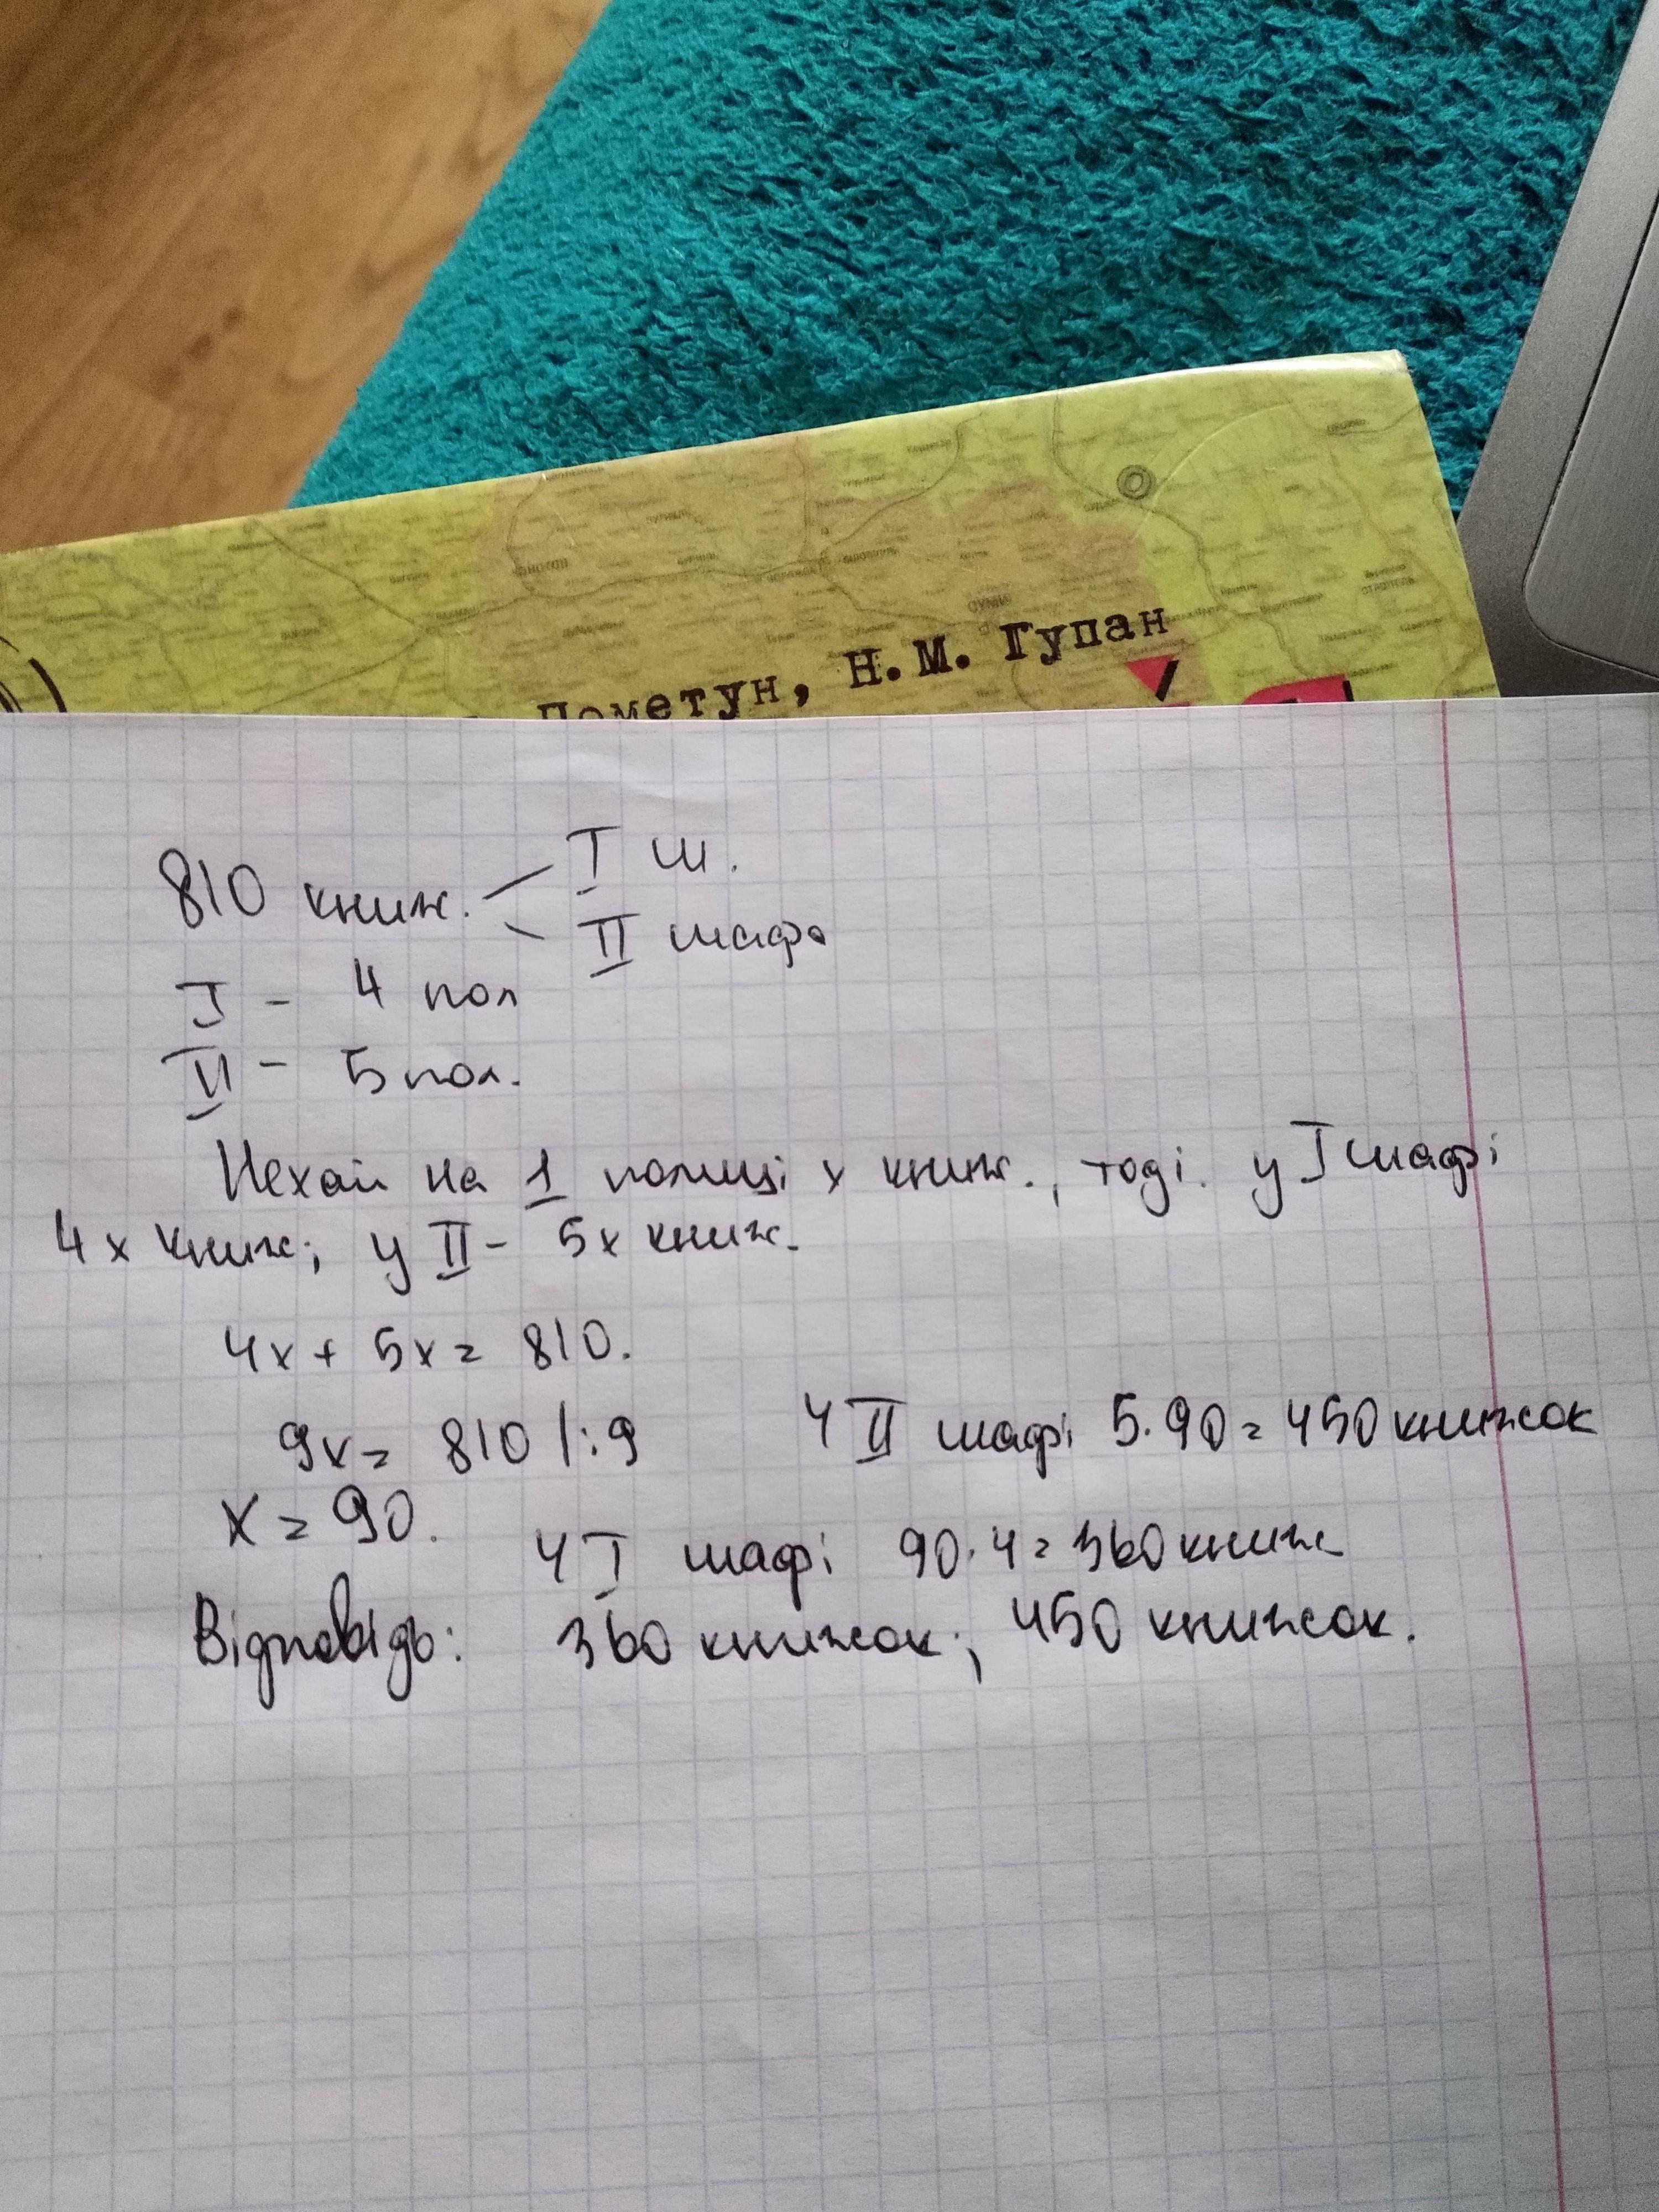 Пометун, Н.М. Гупан
810 книж. I ш.
II шафа
I - 4 пол
II - 5 пол.
Нехай на 1 полиці x книж., тоді у I шафі
4x книж; у II - 5x книж.
4x + 5x = 810.
9x = 810 /:9
У II шафі 5·90 = 450 книжок
x = 90.
У I шафі 90·4 = 360 книж
Відповідь: 360 книжок; 450 книжок.